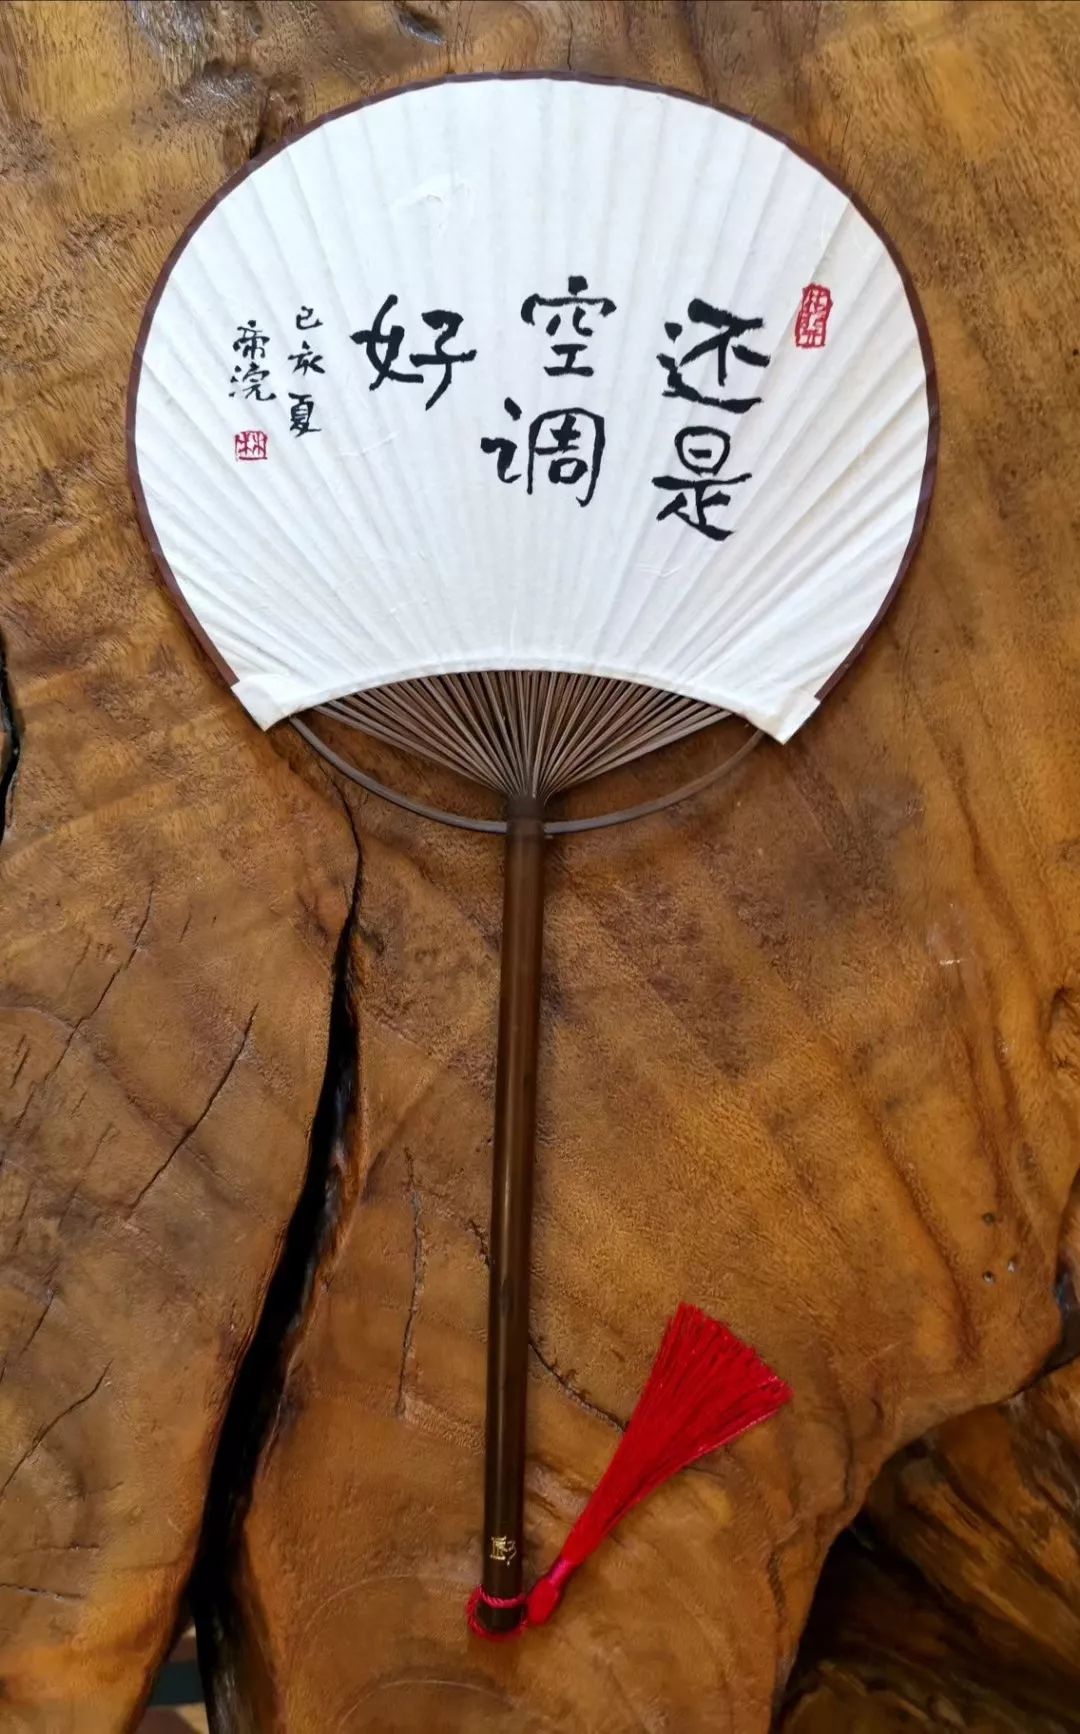 还是
空调
好
己亥夏
帝浣
林